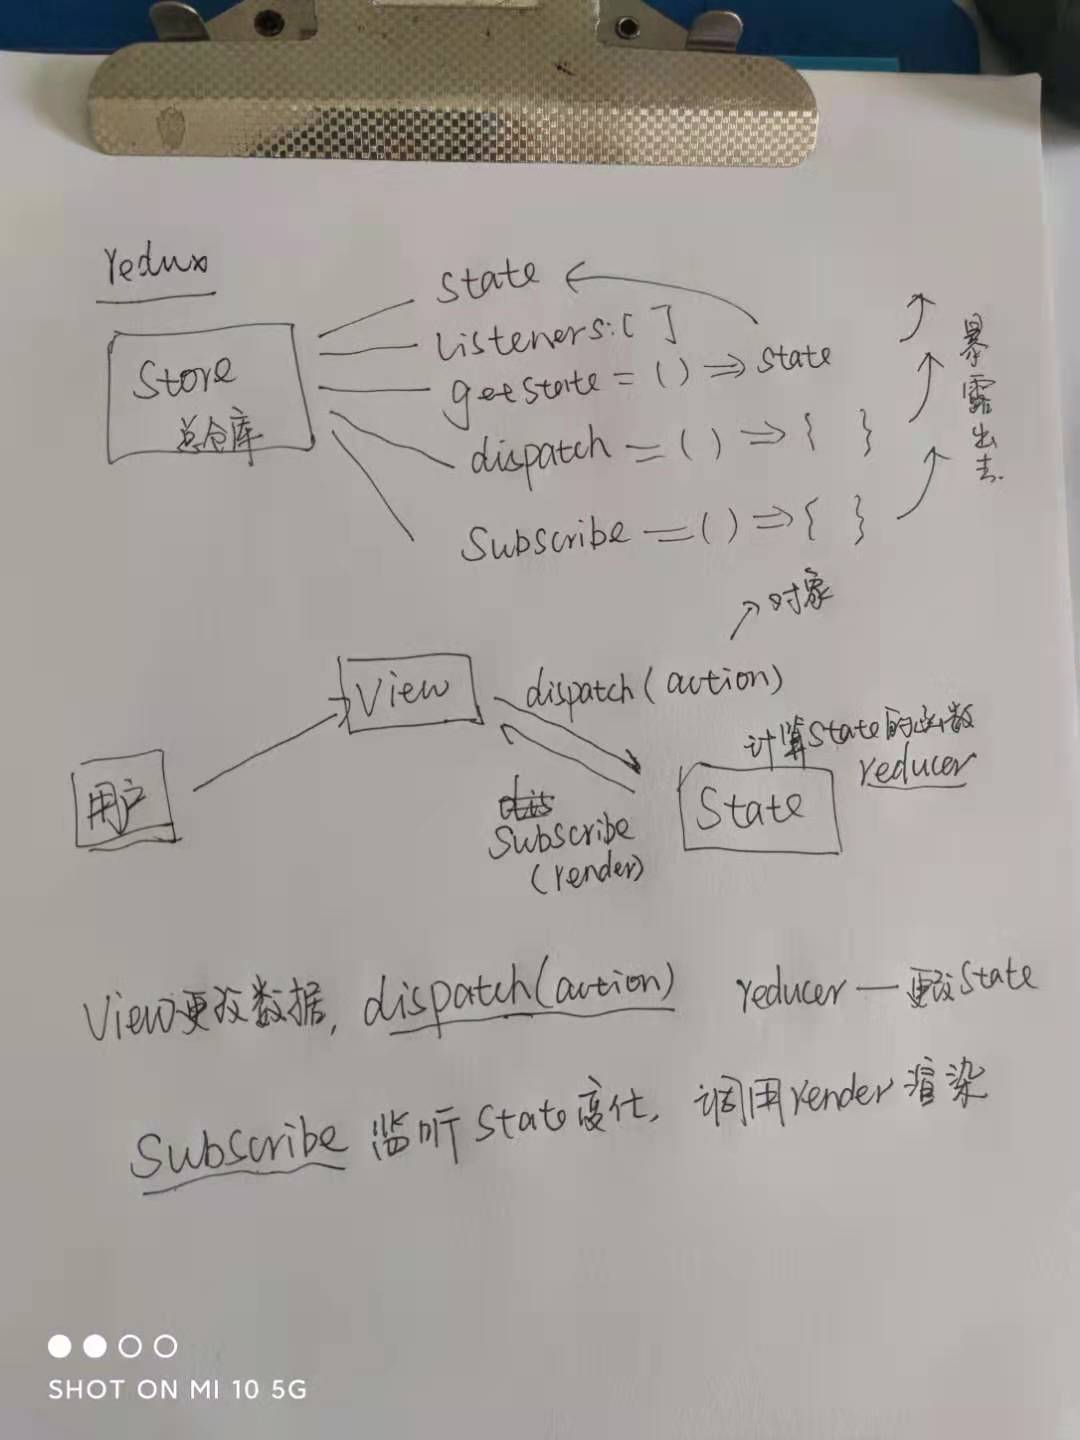 redux
Store
总仓库
State
Listeners:[ ]
getState = ( ) => State
dispatch = ( ) => { }
Subscribe = ( ) => { }
暴露出去.
对象
View
dispatch(action)
用户
计算State的函数
reducer
State
Subscribe
(render)
View更改数据, dispatch(action) reducer — 更改State
Subscribe 监听State变化, 调用render渲染
SHOT ON MI 10 5G